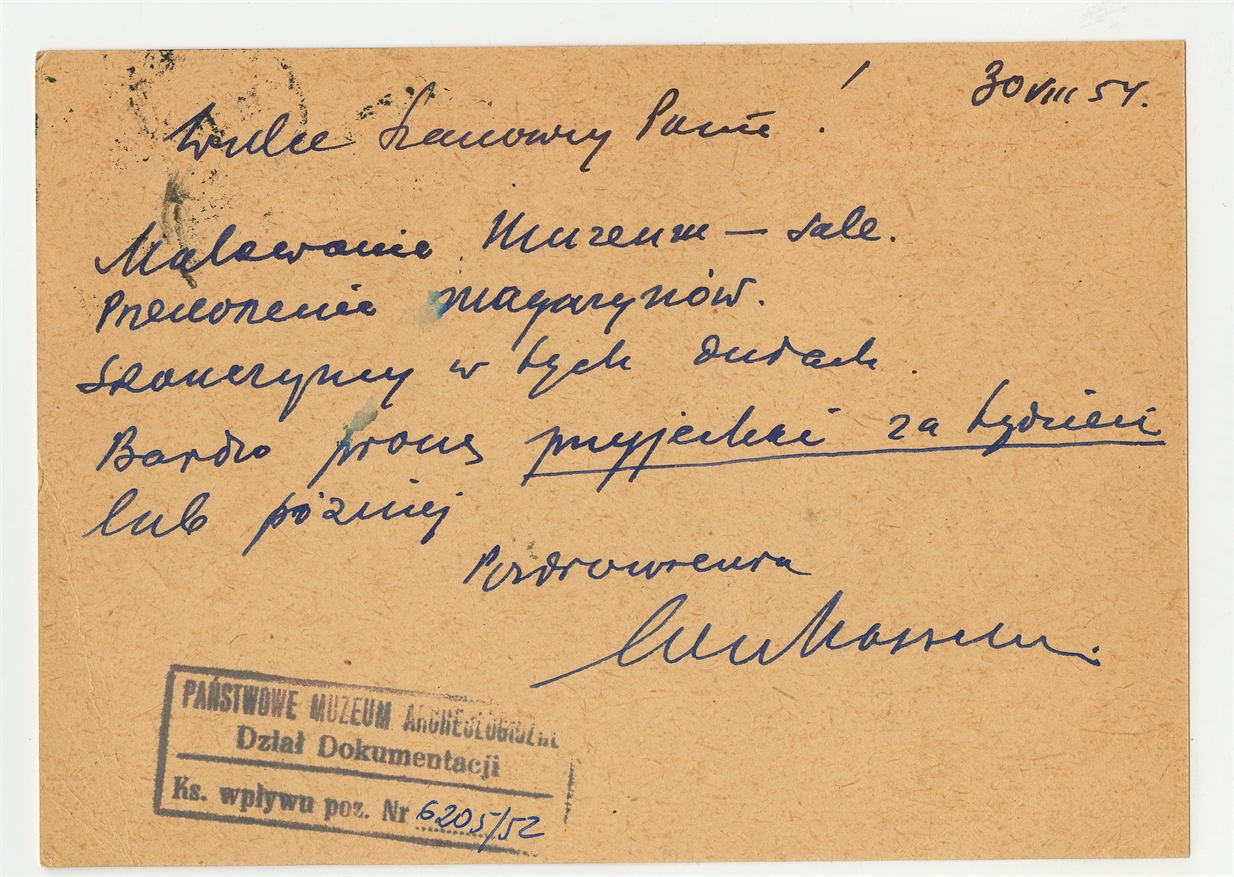 30 VIII 54.
Wielce Szanowny Panie!
Malowanie Muzeum — sale.
Przewożenie magazynów.
Skończymy w tych dniach.
Bardzo proszę przyjechać za tydzień
lub później
Pozdrowienia
PAŃSTWOWE MUZEUM ARCHEOLOGICZNE
Dział Dokumentacji
Ks. wpływu poz. Nr 6205/52